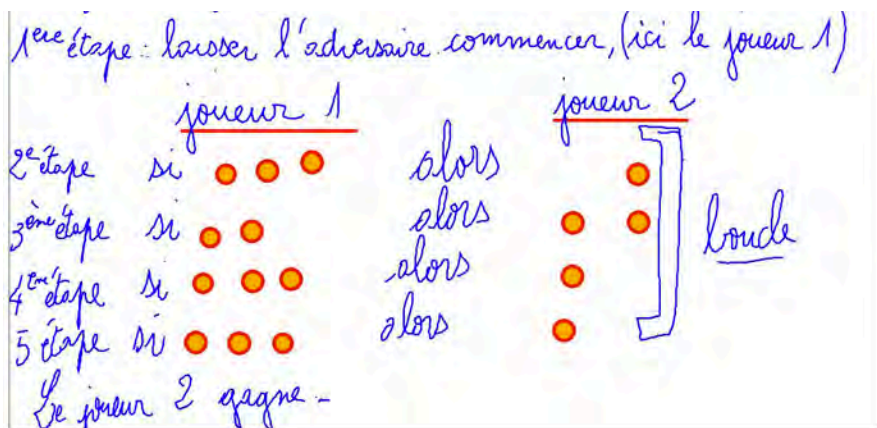 1ere étape : laisser l'adversaire commencer, (ici le joueur 1)
joueur 1 joueur 2
2e étape si alors
3ème étape si alors
boucle
4eme étape si alors
5 étape si alors
Le joueur 2 gagne.